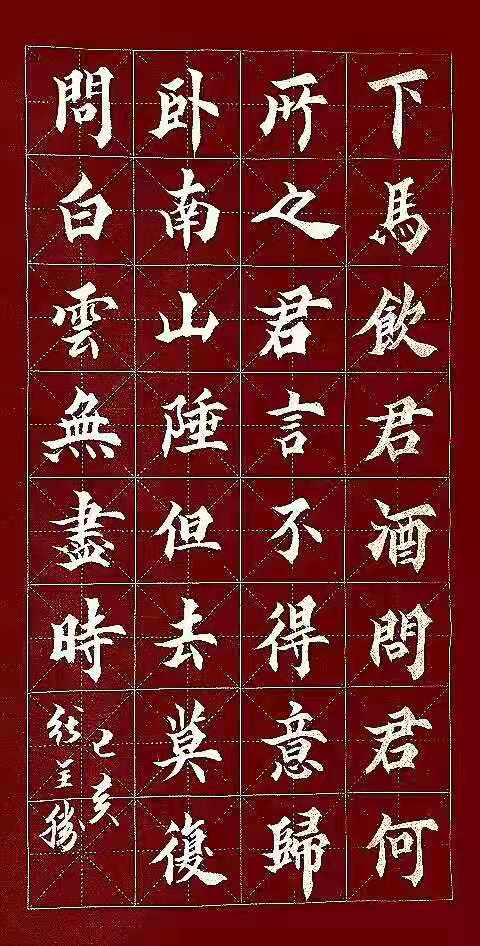 下馬飲君酒問君何
所之君言不得意歸
卧南山陲但去莫復
問白雲無盡時
己亥